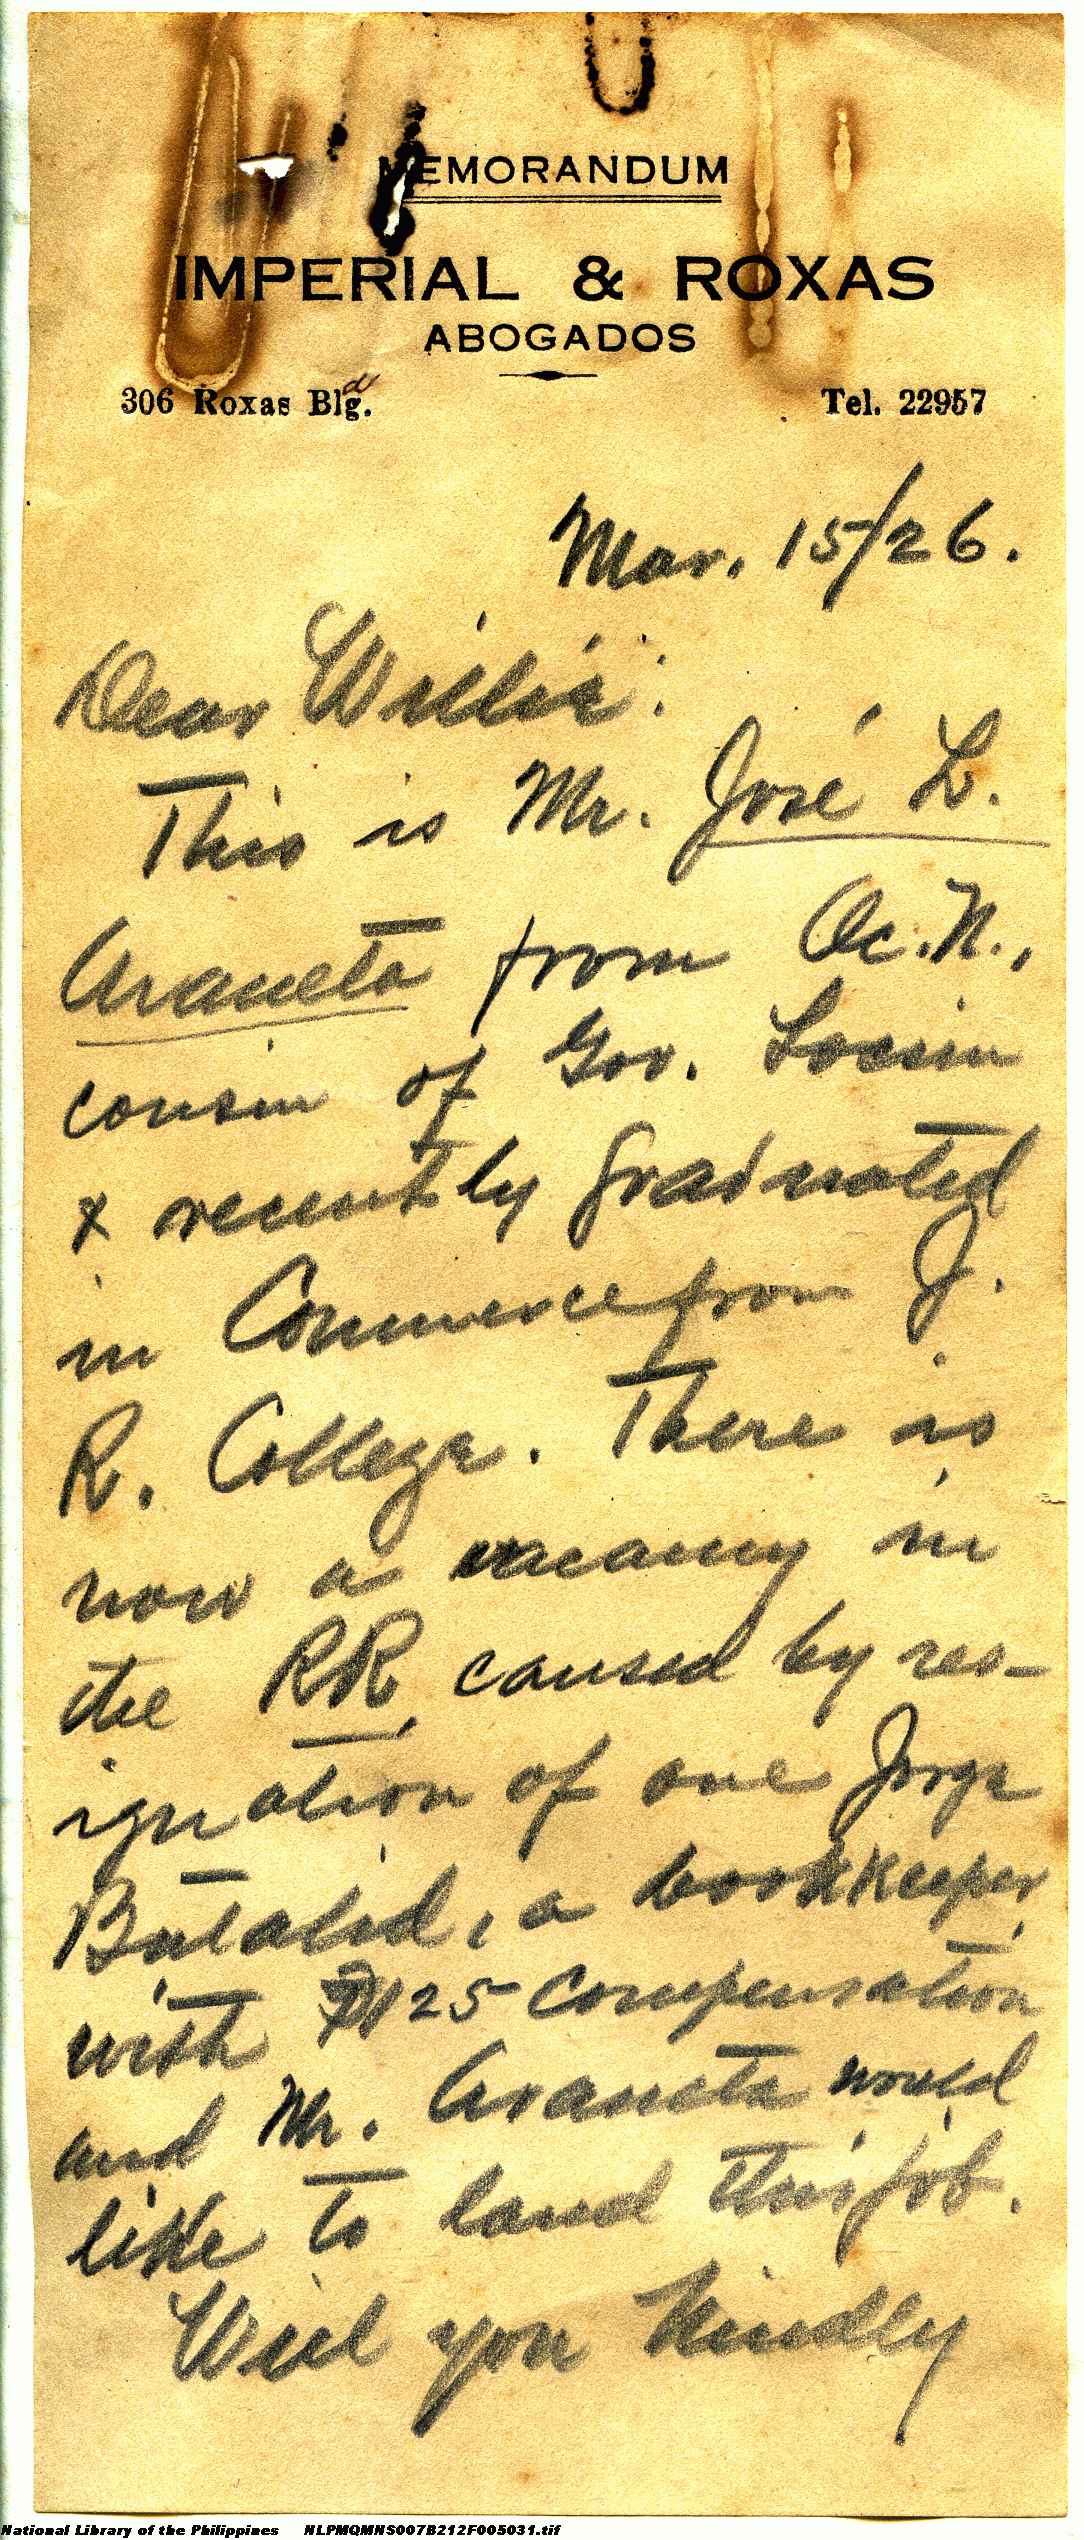 MEMORANDUM
IMPERIAL & ROXAS
ABOGADOS
306 Roxas Bldg. Tel. 22957
Mar. 15/26.
Dear Willie:
This is Mr. José L.
Araneta from Oc. N.,
cousin of Gov. Locsin
& recently graduated
in Commerce from J.
R. College. There is
now a vacancy in
the RR, caused by res-
ignation of one Jorge
Butalid, a bookkeeper,
with ₱125 compensation
and Mr. Araneta would
like to land this job.
Will you kindly
National Library of the Philippines NLPMQMNS007B212F005031.tif